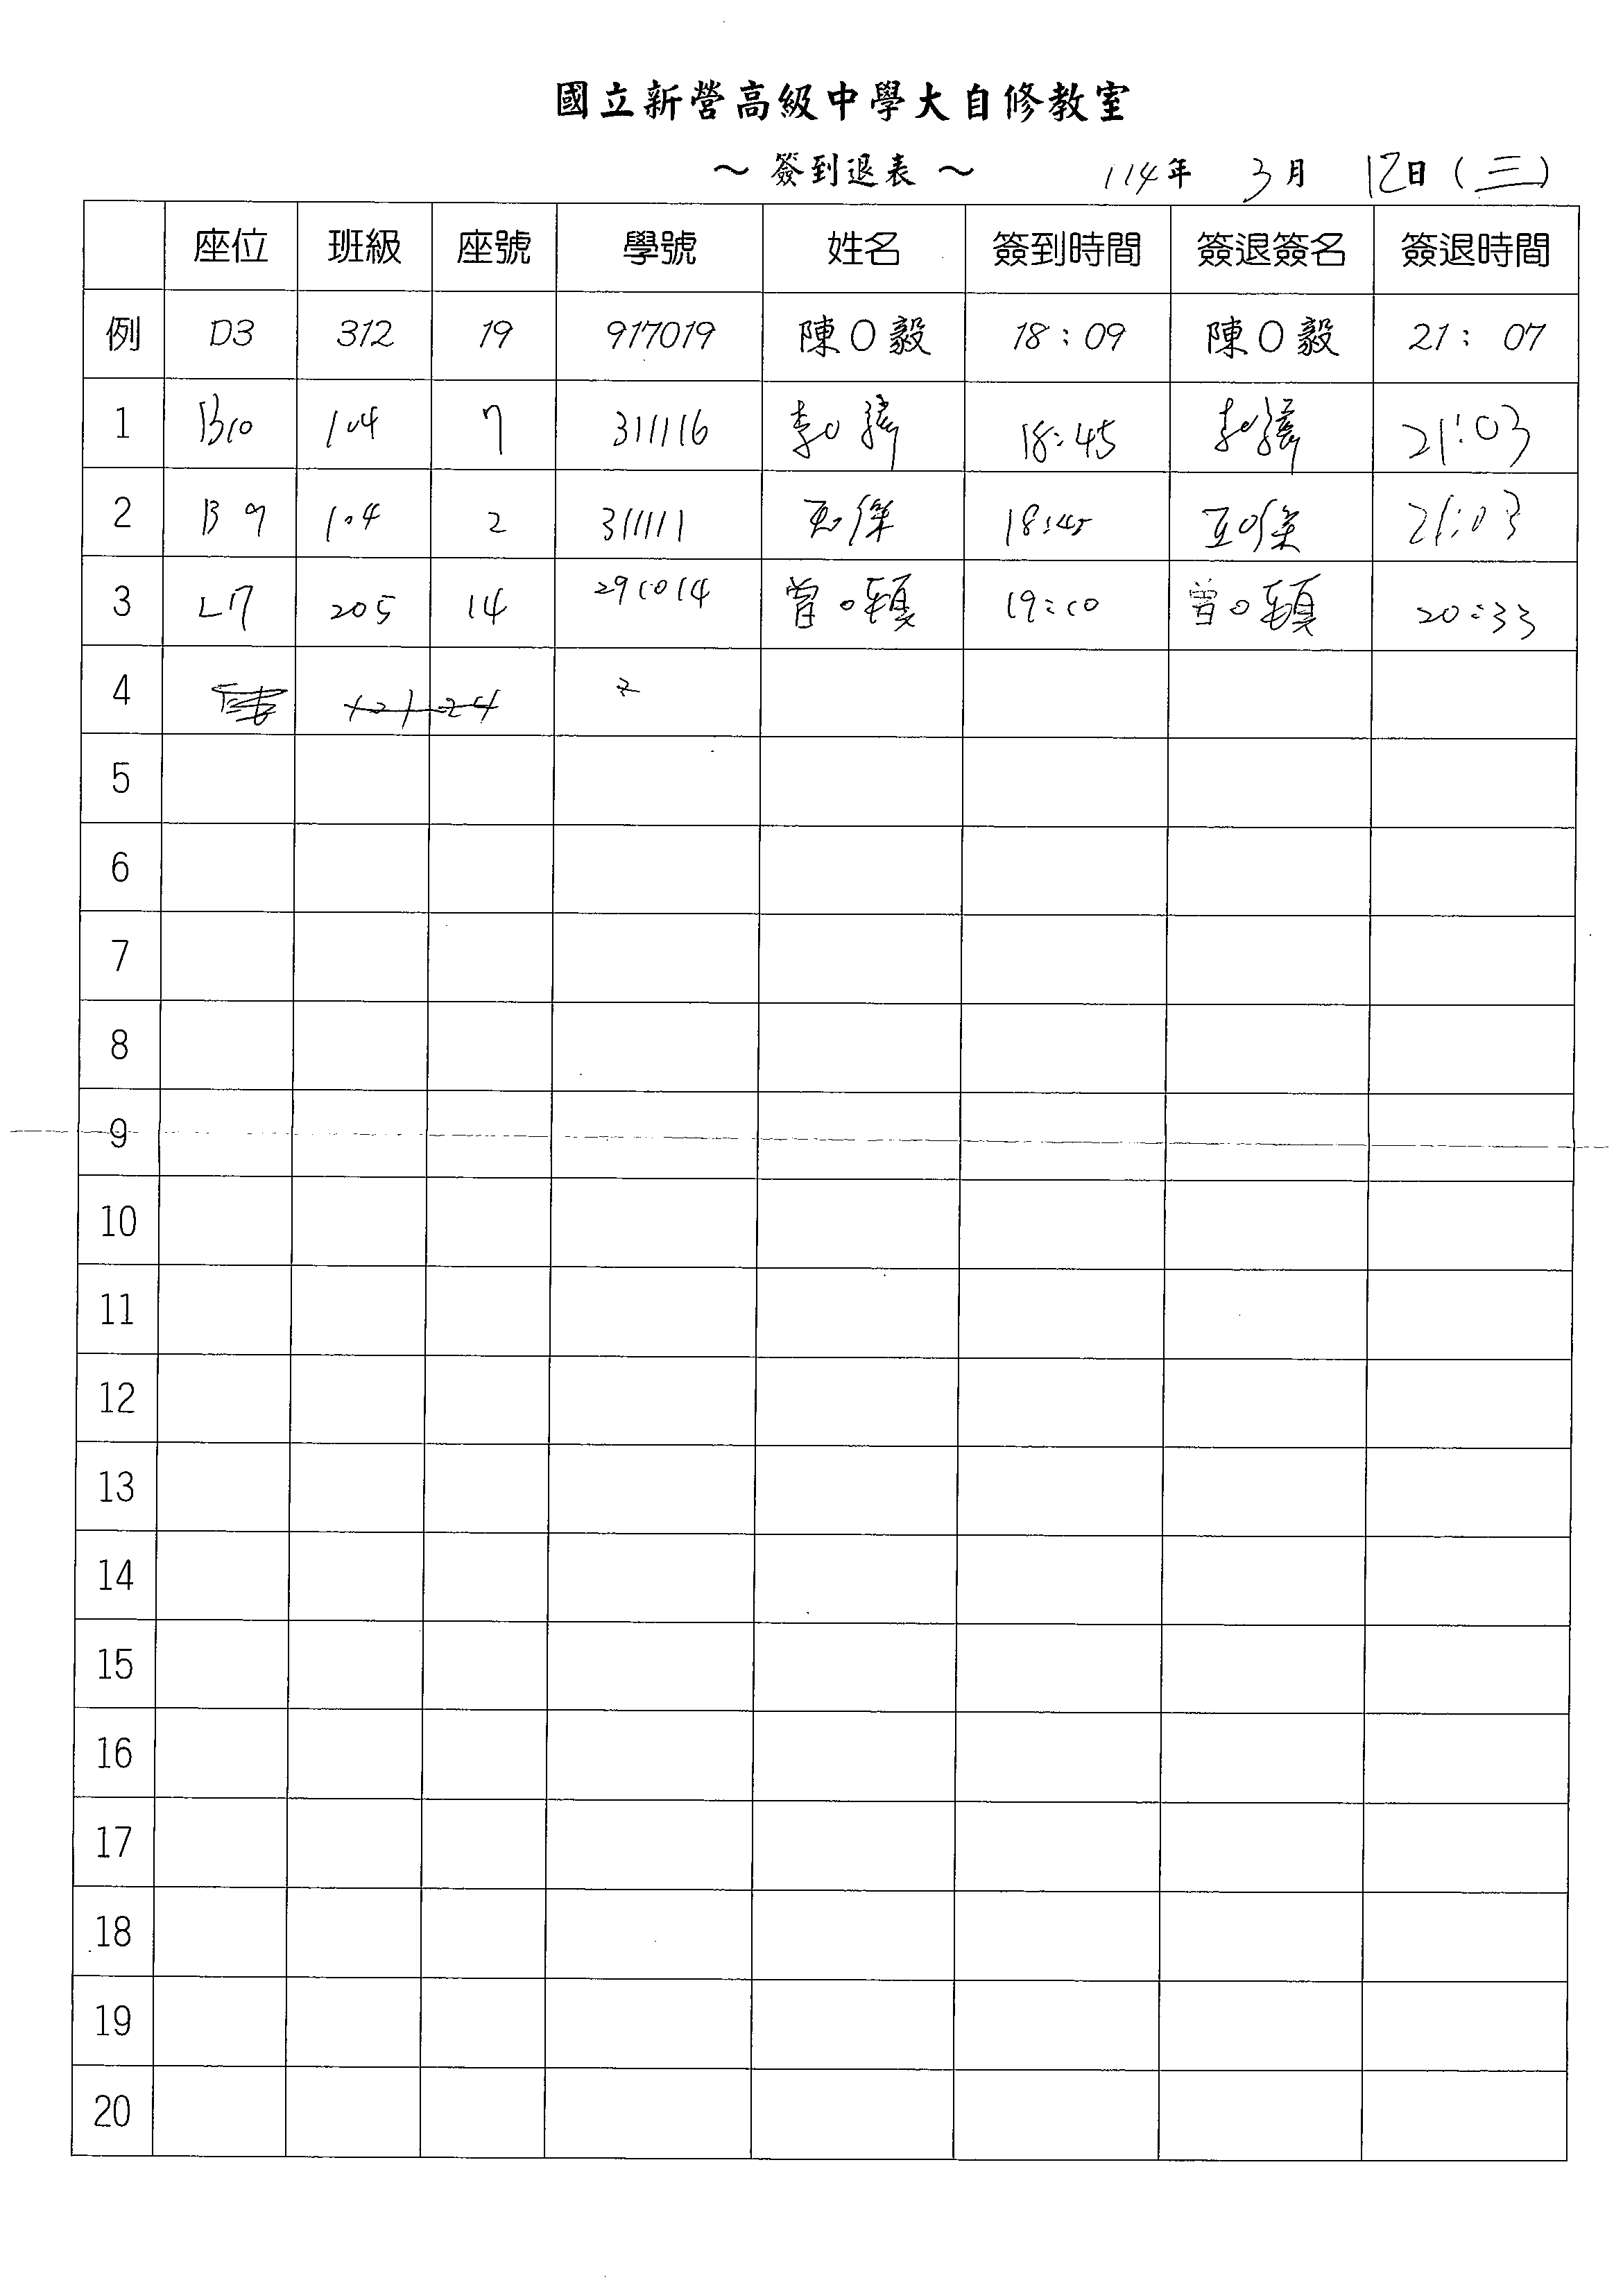 國立新營高級中學大自修教室
～ 簽到退表 ～ 114年 3月 12日(三)
座位 班級 座號 學號 姓名 簽到時間 簽退簽名 簽退時間
例 D3 312 19 917019 陳O毅 18:09 陳O毅 21:07
1 B10 104 7 311116 李O 18:45 李O 21:03
2 B9 104 2 311111 18:45 21:03
3 L7 205 14 291014 曾O穎 19:10 曾O穎 20:33
4
5
6
7
8
9
10
11
12
13
14
15
16
17
18
19
20